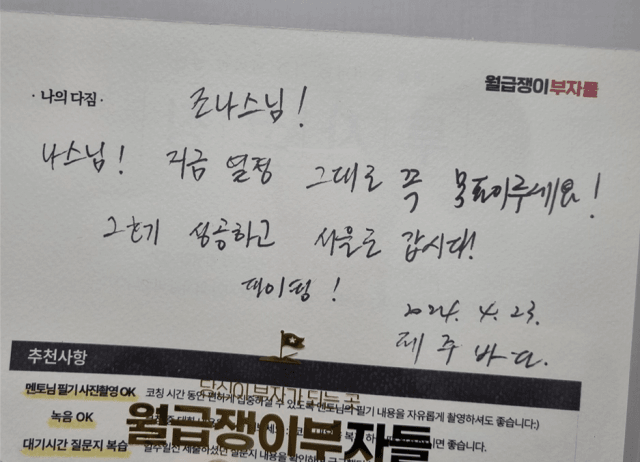 월급쟁이부자들
· 나의 다짐 ·
조나스님!
나스님! 지금 열정 그대로 꼭 목표이루세요!
그흐기 성공하고 사을로 갑시다!
파이팅!
2024. 4. 23.
제주바다.
추천사항
멘토님 필기 사진촬영 OK 코칭 시간 동안 편하게 집중하실 수 있도록 멘토님의 필기 내용을 자유롭게 촬영하셔도 좋습니다:)
당신이 부자가 되는 곳
녹음 OK
월급쟁이부자들
대기시간 질문지 복습